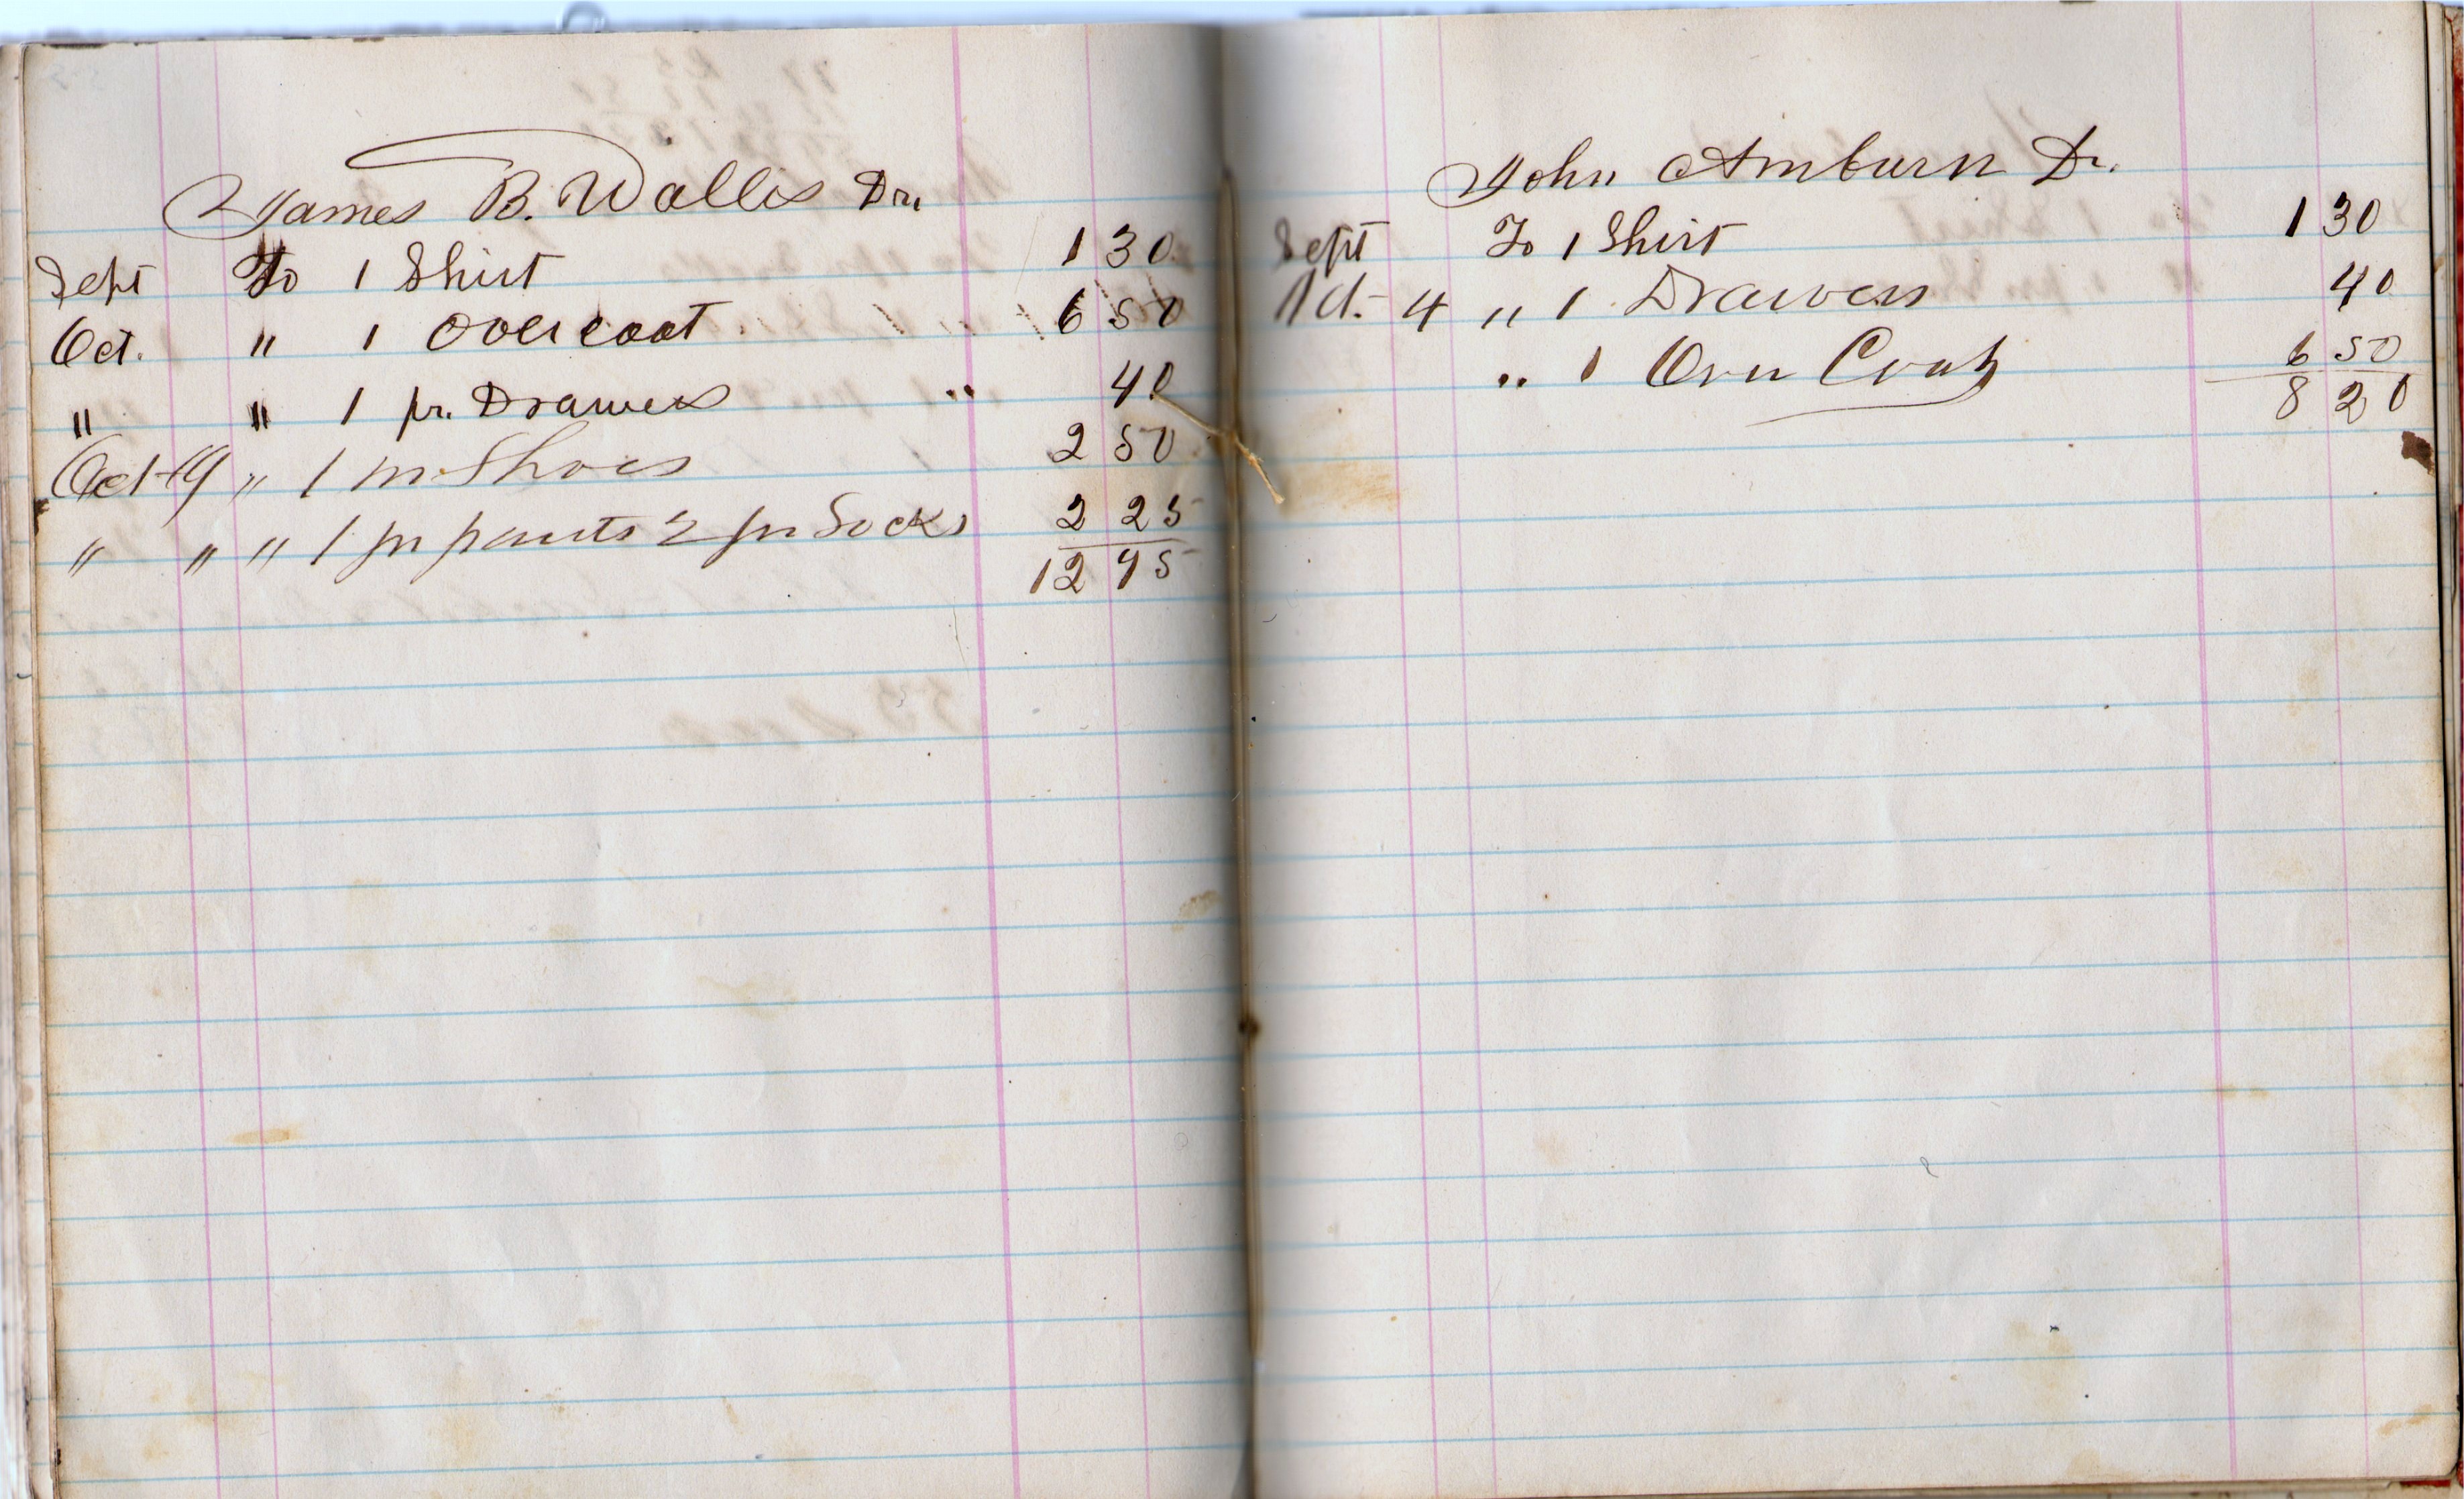 James B. Wallis Dr.
Sept To 1 Shirt 1 30
Oct. " 1 Overcoat 6 50
" " 1 pr. Drawers " 40
Oct 19 " 1 pr Shoes 2 50
" " " 1 pr pants 2 pr Socks 2 25
12 95
John Amburn Dr.
Sept To 1 Shirt 1 30
Oct. 4 " 1 Drawers 40
" 1 Over Coat 6 50
8 20